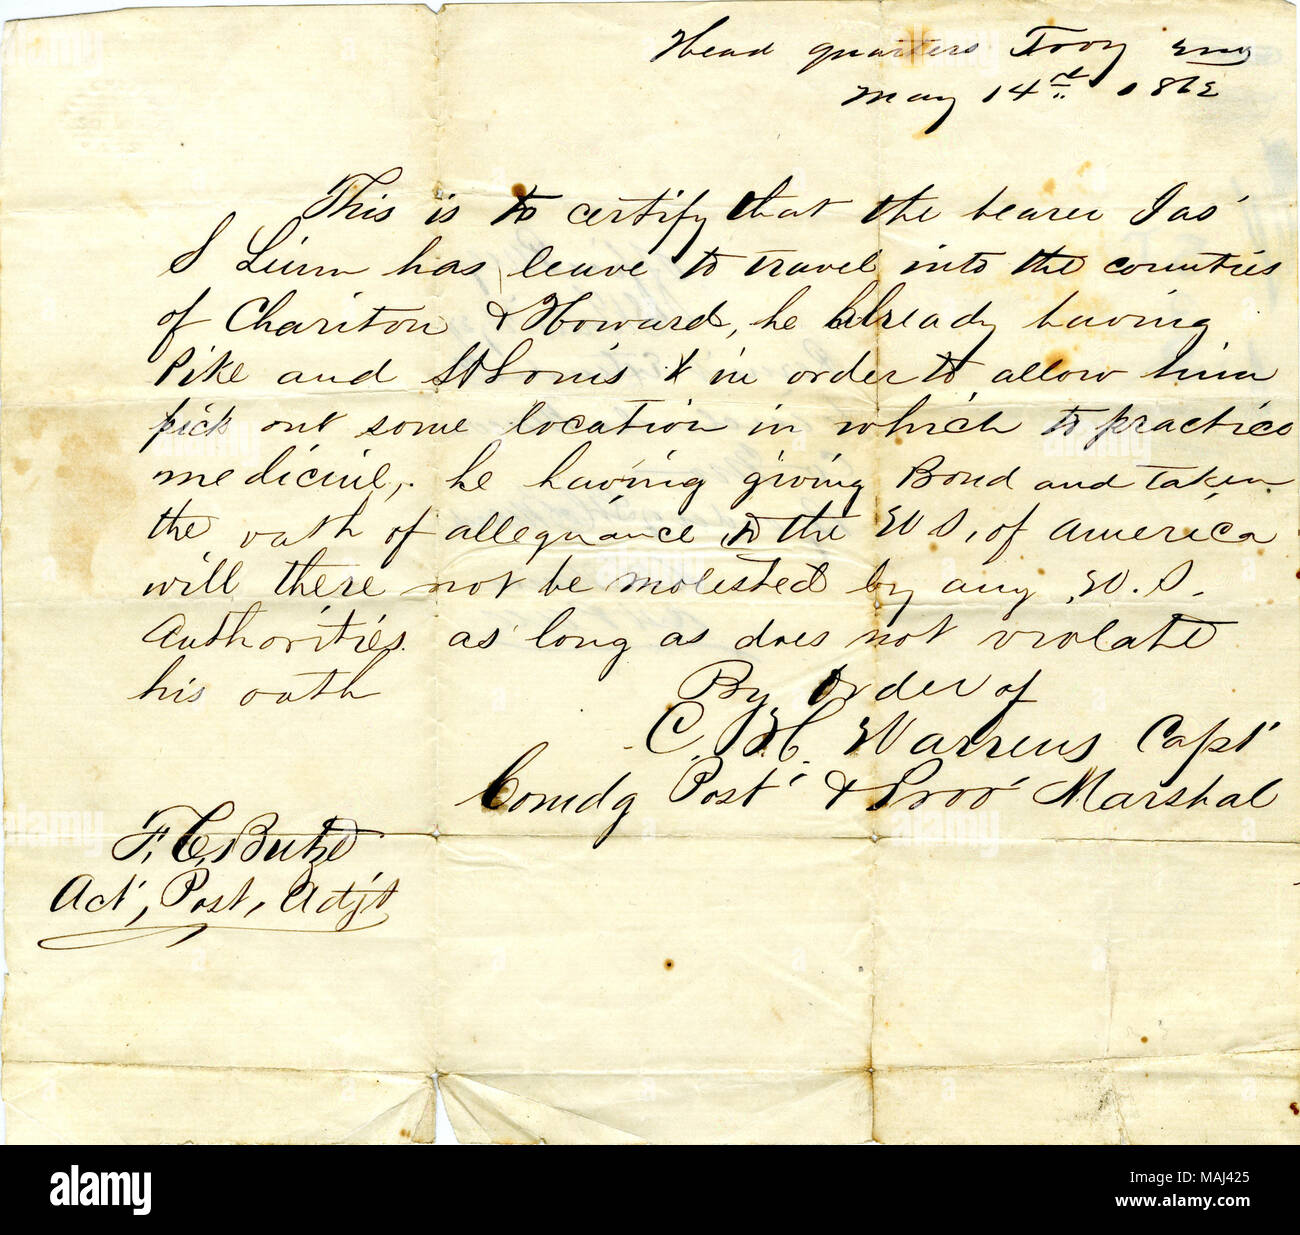 Head quarters Troy Mo
May 14th 1862
This is to certify that the bearer Jas'
S Linn has leave to travel into the counties
of Chariton & Howard, he already having
Pike and St Louis & in order to allow him
pick out some location in which to practice
medicine, he having giving Bond and taken
the oath of allegiance to the U S, of America
will there not be molested by any U. S.
Authorities as long as does not violate
his oath
By order of
C. H. Warrens Capt
Comdg Post & Prov' Marshal
F. C.
Act', Post, Adjt
alamy
Image ID: MAJ425
www.alamy.com